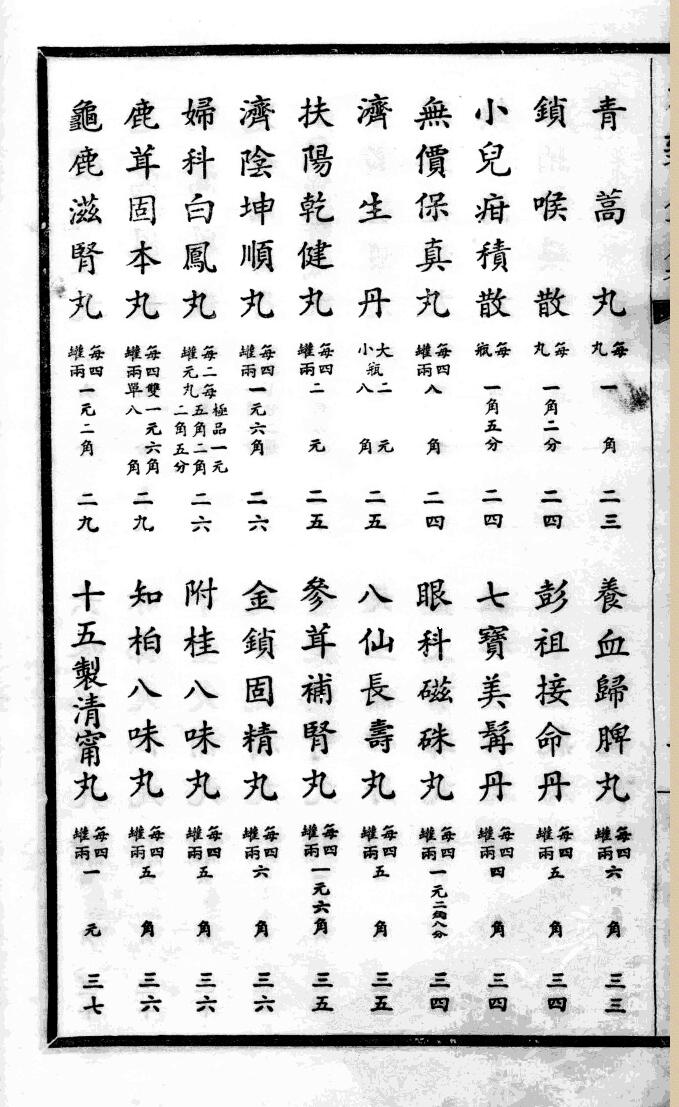 青蒿丸 每丸一角 二三
鎖喉散 每丸一角二分 二四
小兒疳積散 每瓶一角五分 二四
無價保真丸 每四兩罐八角 二四
濟生丹 大瓶二元 小瓶八角 二五
扶陽乾健丸 每四兩罐二元 二五
濟陰坤順丸 每四兩罐一元六角 二六
婦科白鳳丸 每罐二元 每丸極品一元 五角二角 二角五分 二六
鹿茸固本丸 每四兩罐雙一元六角 單八角 二九
龜鹿滋腎丸 每四兩罐一元二角 二九
養血歸脾丸 每四兩罐六角 三三
彭祖接命丹 每四兩罐五角 三四
七寶美髯丹 每四兩罐四角 三四
眼科磁硃丸 每四兩罐一元二角八分 三四
八仙長壽丸 每四兩罐五角 三五
參茸補腎丸 每四兩罐一元六角 三五
金鎖固精丸 每四兩罐六角 三六
附桂八味丸 每四兩罐五角 三六
知柏八味丸 每四兩罐五角 三六
十五製清甯丸 每四兩罐一元 三七